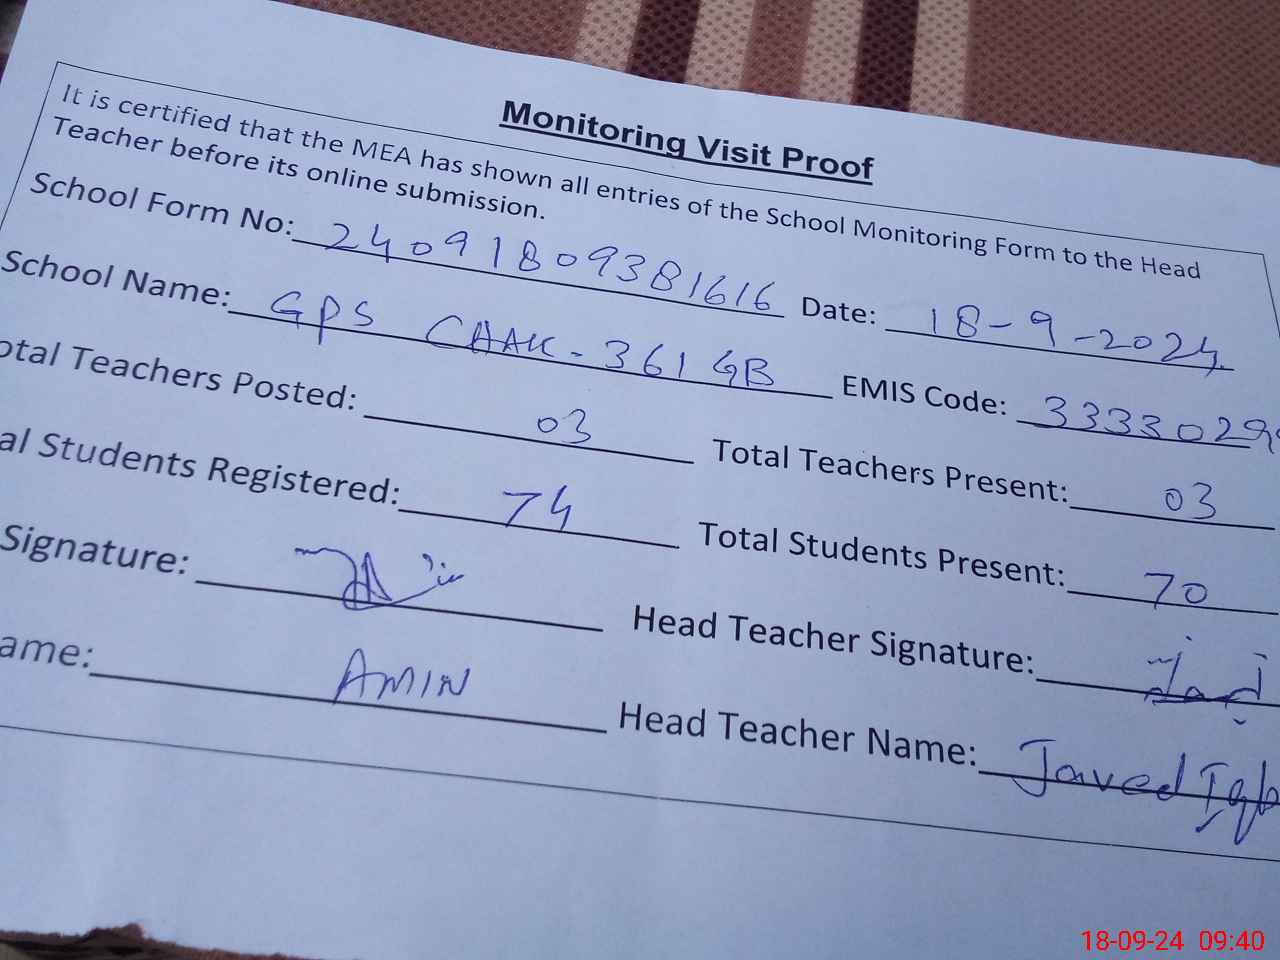 Monitoring Visit Proof
It is certified that the MEA has shown all entries of the School Monitoring Form to the Head
Teacher before its online submission.
School Form No: 24091809381616 Date: 18-9-2024
School Name: GPS CHAK-361 GB EMIS Code: 3333029
otal Teachers Posted: 03 Total Teachers Present: 03
al Students Registered: 74 Total Students Present: 70
Signature: Head Teacher Signature:
ame: AMIN Head Teacher Name: Javed Iqb
18-09-24 09:40